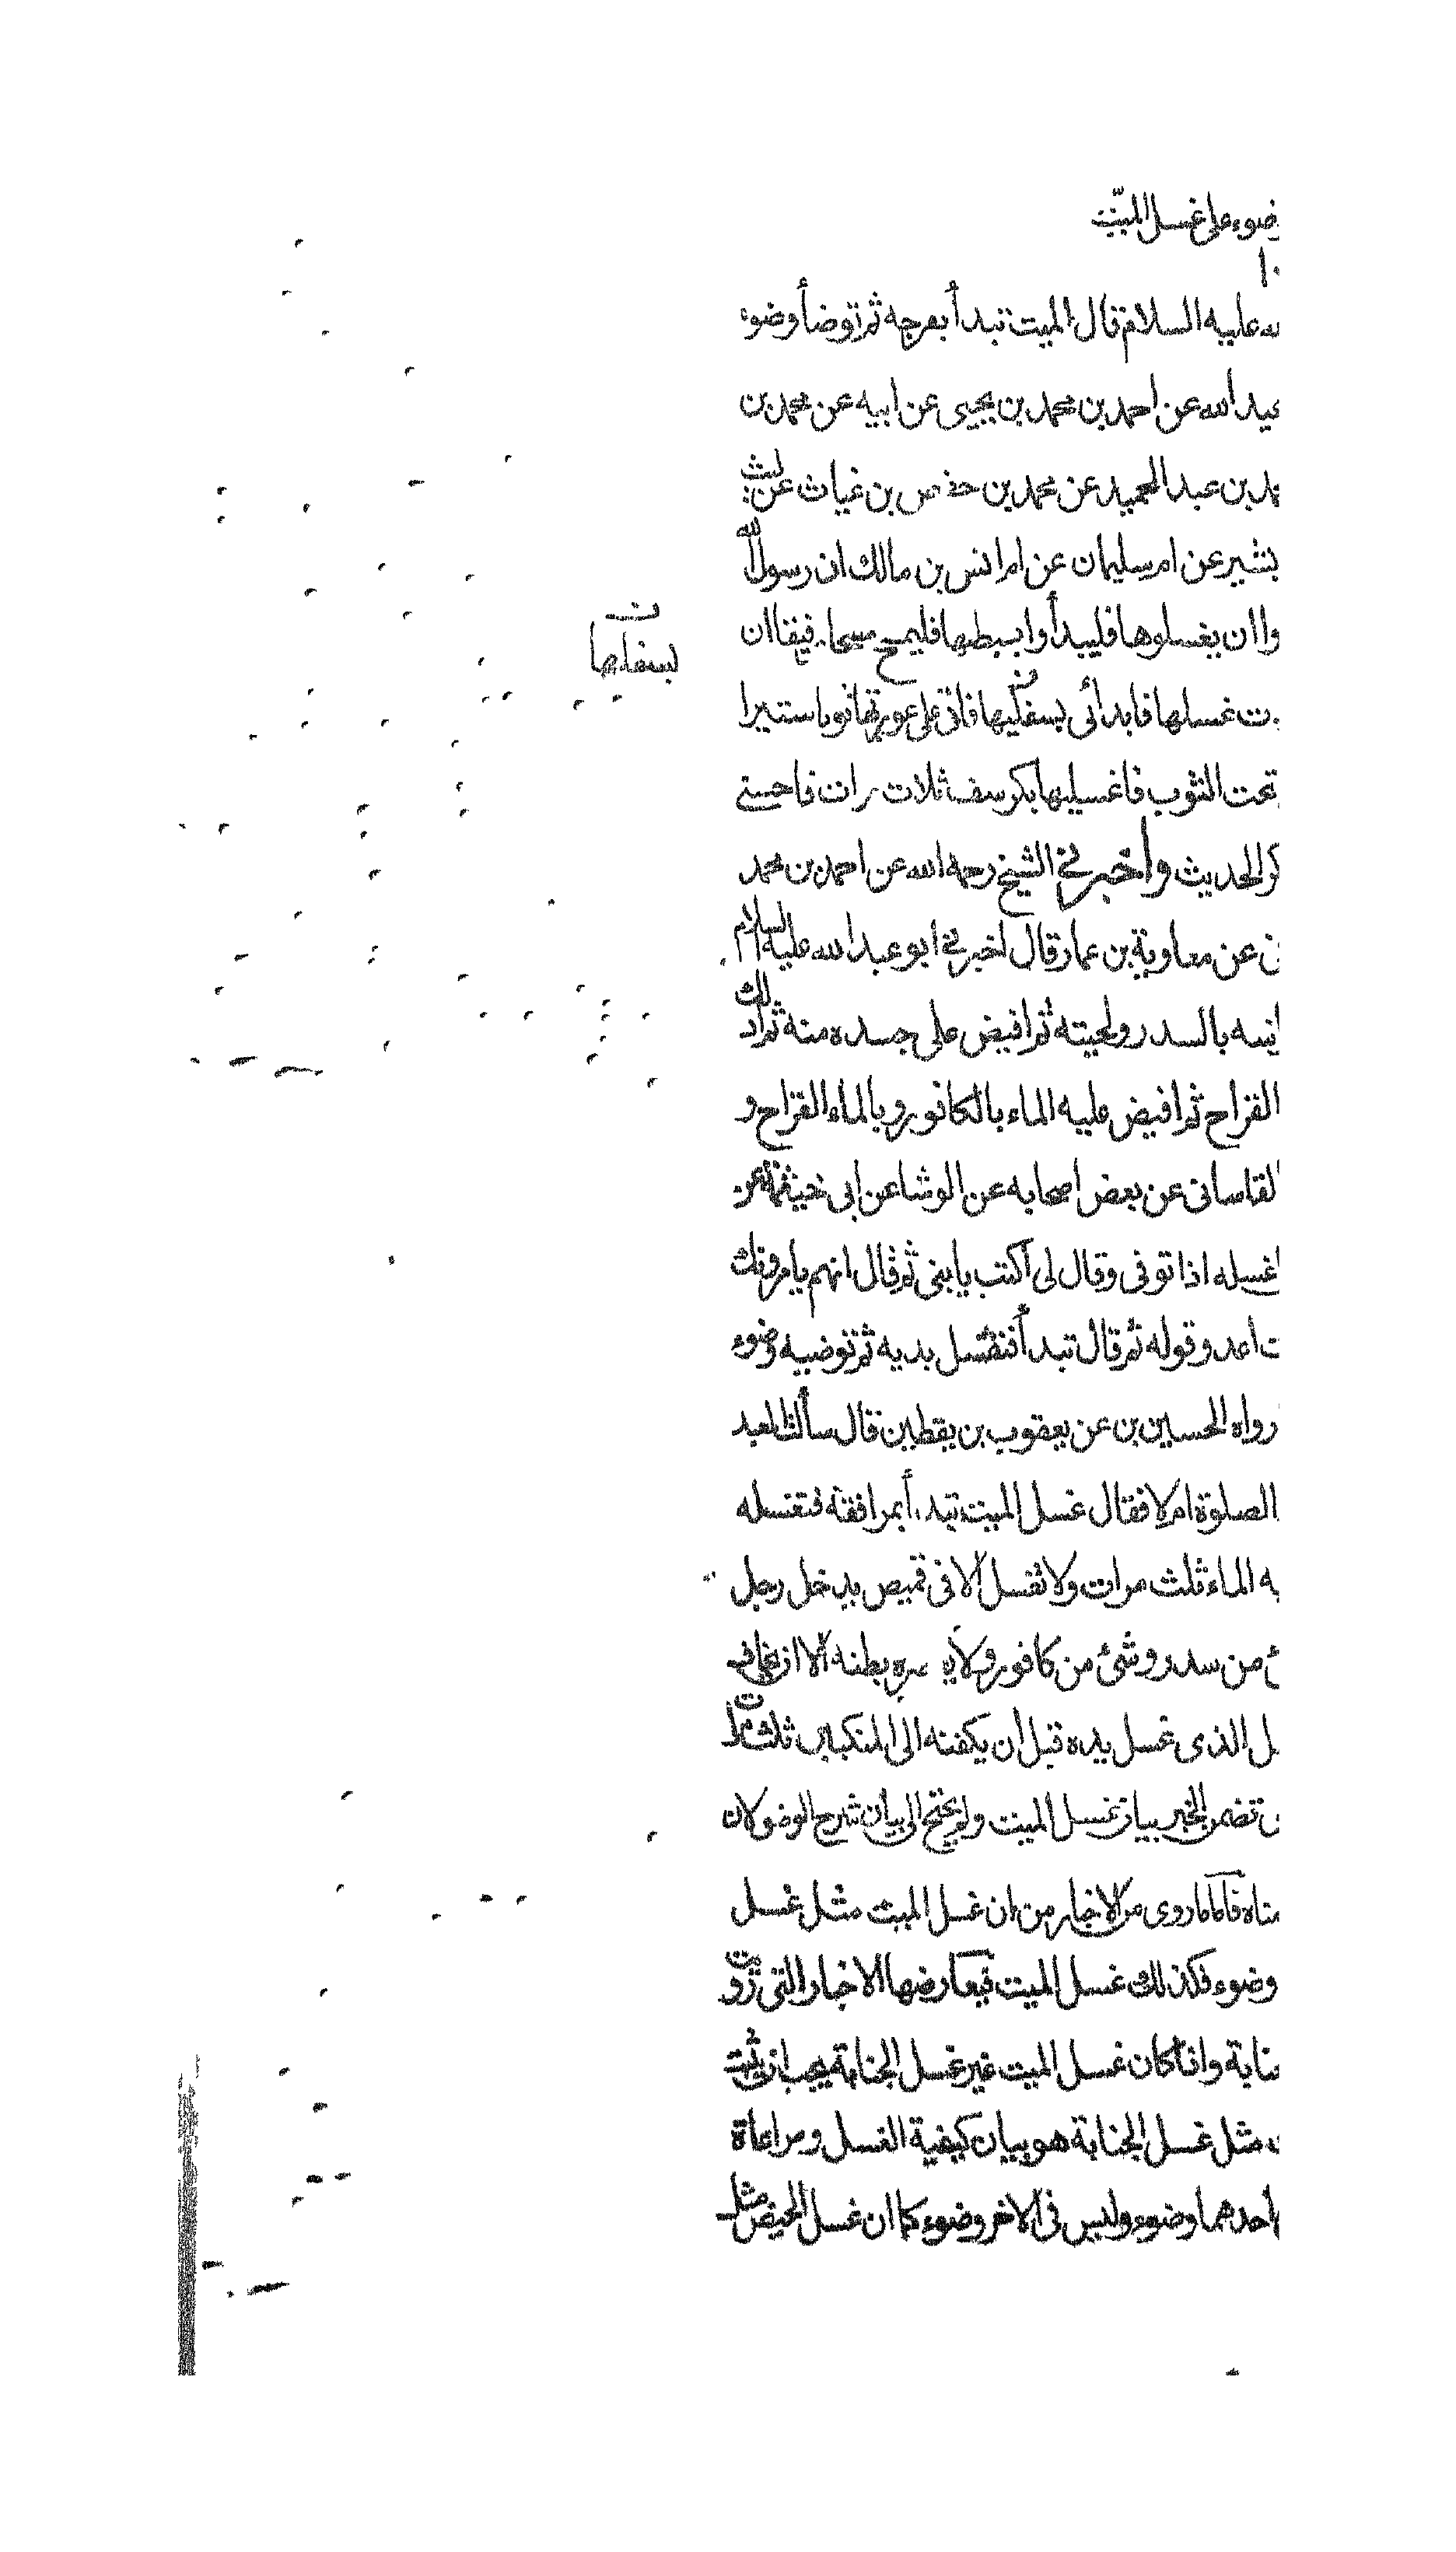 وضوء على غسل الميّت
الله عليه السلام قال الميت تبدأ بفرجه ثم توضأ وضوء
عبد الله عن احمد بن محمد بن يحيى عن ابيه عن محمد بن
بن عبد الحميد عن محمد بن حفص بن غياث عن ليث
بشير عن ام سليمان عن ام انس بن مالك ان رسول الله
ان يغسلوها فليبدأوا ببطنها فليمسح مسحا رفيقا ان
غسلها فابدأئى بسفليها فالقى على عورتها ثوبا ستيرا
بسفلها
تحت الثوب فاغسليها بكرسف ثلاث مرات فاحسنى
الحديث وأخبرني الشيخ رحمه الله عن احمد بن محمد
عن معاوية بن عمار قال اخبرني ابو عبد الله عليه السلام
بالسدر ولحيته ثم افيض على جسده منه ثم ادلك
القراح ثم افيض عليه الماء بالكافور وبالماء القراح و
القاساني عن بعض اصحابه عن الوشا عن ابى خيثمة عن
اغسله اذا توفى وقال لى اكتب يا بنى ثم قال انهم يامرونك
اعد وقوله ثم قال تبدأ فتغسل يديه ثم توضيه وضوء
رواه الحسين بن عن يعقوب بن يقطين قال سألت العبد
الصلوة ام لا فقال غسل الميت تبدأ بمرافقه فتغسله
الماء ثلث مرات ولا تغسل الا في قميص يدخل رجل
من سدر وشئ من كافور ولا يعصره بطنه الا ان يخاف
الذى غسل يده قبل أن يكفنه الى المنكبين ثلث مرات
تضمن الخبر بيان غسل الميت ولم يحتج الى بيان شرح الوضو لان
فاما ما روى من الاخبار من ان غسل الميت مثل غسل
وضوء فكذلك غسل الميت فيعارضها الاخبار التي رويت
وانما كان غسل الميت غير غسل الجنابة يجب ان يثبت
مثل غسل الجنابة هو بيان كيفية الغسل ومراعاة
أحدهما وضوء وليس في الاخر وضوء كما ان غسل الحيض مثل